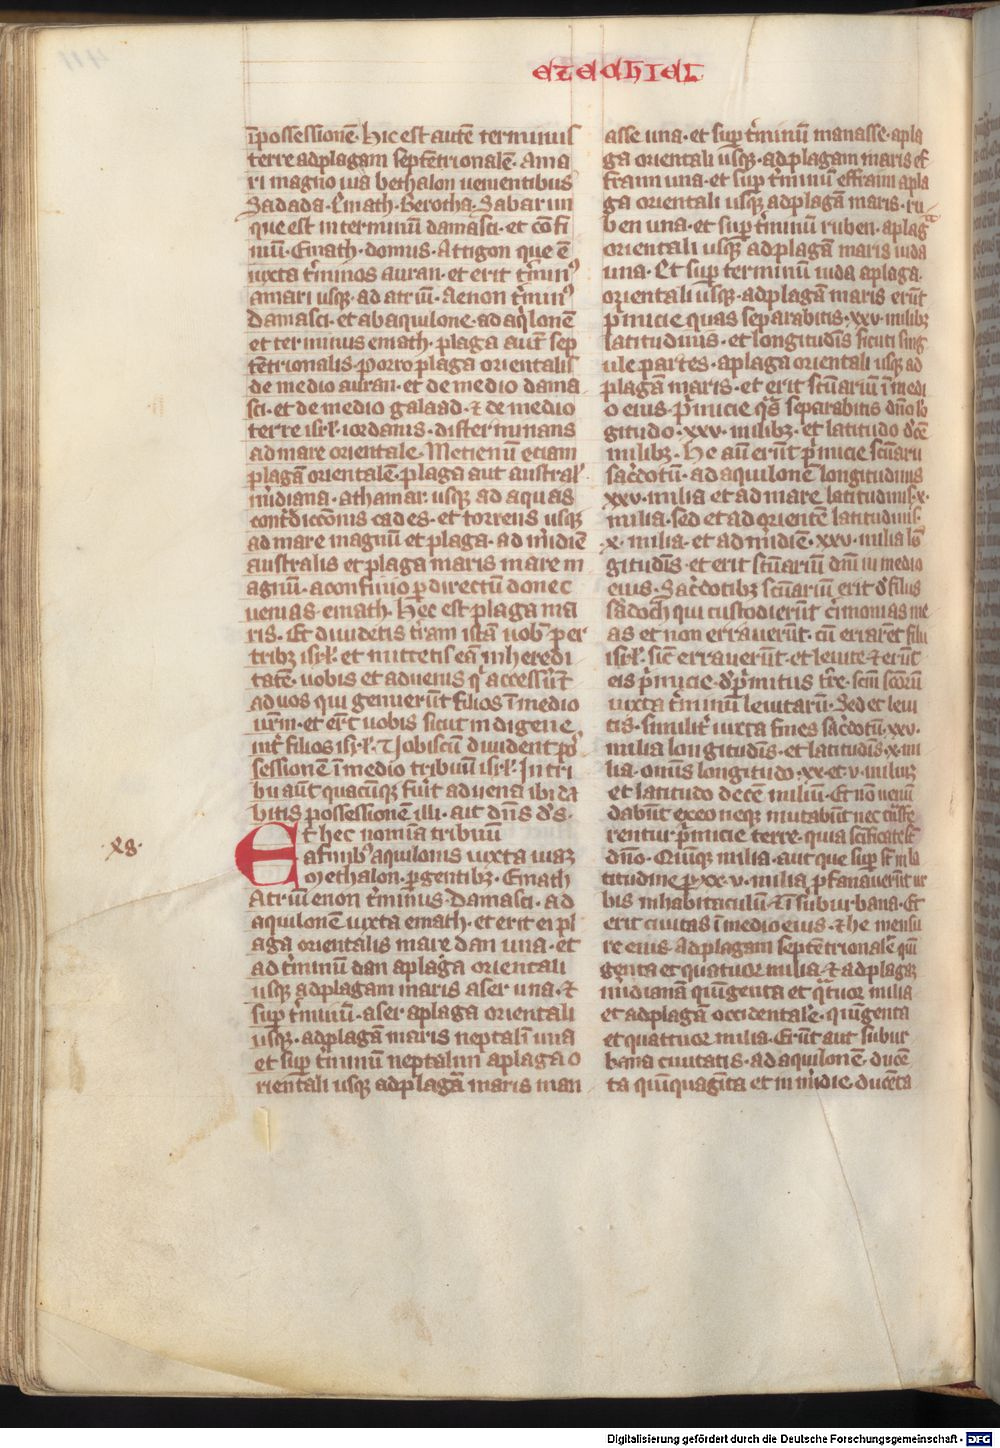 EZECHIEL
ī possessionē· hic est autē terminus
terre ad plagam septētrionalē· A ma
ri magno uia bethalon uenientibus
Sadada· Emath· Berotha· Sabarim
que est in terminū damasci· et cōfi
niū· Emath· domus· Attigon que ē
iuxta t͛minos auran· et erit t͛minꝰ
a mari usqꝫ ad atriū· Aenon t͛minꝰ
damasci· et ab aquilone· ad aqͥlonē
et terminus emath· plaga aut̄ sep
tētrionalis· Porro plaga orientalis
de medio auran· et de medio dama
sci· et de medio galaad· ⁊ de medio
terre isrł· iordanis· disterminans
ad mare orientale· Metienū etiam
plagā orientalē· plaga aut austral͛
m͛idiana· a thamar· usqꝫ ad aquas
cont͛diccōnis cades· et torrens usqꝫ
ad mare magnū et plaga· ad m͛idiē
australis et plaga maris mare m
agnū· a confinio ꝑ directū donec
uenias· emath· Hec est plaga ma
ris· Et diuidetis t͛ram istā uob͛ per
tribꝫ isrł· et mittetis eā in heredi
tatē· uobis et aduenis qͥ access͛ūt
ad uos qui genuerūt filios ī medio
ur̄m· et er̄t uobis sicut indigene
int͛ filios isrł· ⁊ uobiscū diuident pos͛
sessionē ī medio tribuū isrł· In tri
bu aūt quacūqꝫ fu͛it aduena ibi da
bitis possessionē illi· ait dn̄s d͛s·
Et hec nomīa tribuū
a finibꝰ aquilonis iuxta uiaꝫ
Oethalon· ꝑgentibꝫ· Emath
Atriū enon t͛minus· Damasci· ad
aquilonē iuxta emath· et erit ei pl
aga orientalis mare dan una· et
ad t͛minū dan a plaga orientali
usqꝫ ad plagam maris aser una· ⁊
sup͛ t͛minū· aser a plaga orientali
usqꝫ· ad plagā maris neptalī una
et sup͛ t͛minū neptalim a plaga o
rientali usqꝫ ad plagā maris man
x8·
asse una· et sup͛ t͛minū manasse· a pla
ga orientali usqꝫ· ad plagam maris ef
fraim una· et sup͛ t͛minū effraim a pla
ga orientali usqꝫ ad plagā maris· ru
ben una· et sup͛ t͛minū ruben· a plagᵃ
orientali usqꝫ ad plagā maris iuda
una· Et sup͛ terminū iuda a plaga·
orientali usqꝫ· ad plagā maris erūt
p͛micie quas separabitis· xxv· milibꝫ
latitudinis· et longitudīs sicuti sing
ule partes· a plaga orientali usqꝫ ad
plagā maris· et erit sc̄uariū ī medi
o eius· P͛micie qͣs separabitis dn̄o lō
gitudo· xxv· milibꝫ· et latitudo d͛cē
milibꝫ· He aū erūt p͛micie sc̄uarii
sac͛dotū· ad aquilonē longitudinis
xxv· milia et ad mare latitudinis· x·
milia· sed et ad orientē latitudinis·
x· milia· et ad m͛idiē· xxv· milia lō
gitudīs· et erit sc̄uariū dn̄i in medio
eius· Sac͛dotibꝫ sc̄uariū erit d͛ filiis
sadoch qui custodierūt c͛imonias me
as et non errauerūt· cū errarēt filii
isrł· sic̄ errauerūt· et leuite· ⁊ erūt
eis p͛micie· d͛ p͛mitiis t͛re· sc̄m sc̄orū
iuxta t͛minū leuitarū· Sed et leui
tis· similit͛ iuxta fines sac͛dotū· xxv·
milia longitudīs· et latitudīs· x· mi
lia· omīs longitudo· xx· et v· miliuꝫ
et latitudo decē miliū· Et nō uenū
dabūt ex eo neqꝫ mutabūt nec t͛nsfe
rentur p͛micie terre· quia scīficate st̄
dn̄o· Quinqꝫ milia· aut que sup͛ st̄ in la
titudine ꝑ xx· v· milia ꝓfana uerūt ur
bis in habitaculū· ⁊ ī suburbana· Et
erit ciuitas ī medio eius· ⁊ he mensu
re eius· ad plagam septētrionalē qui
genta et quatuor milia· ⁊ ad plagaꝫ
m͛idianā quīgenta et qͣtuor milia
et ad plagā occidentale· quīgenta
et quattuor milia· Erūt aut subur
bana ciuitatis· ad aquilonē· ducē
ta quīquagīta et in m͛idie· ducēta
Digitalisierung gefördert durch die Deutsche Forschungsgemeinschaft - DFG